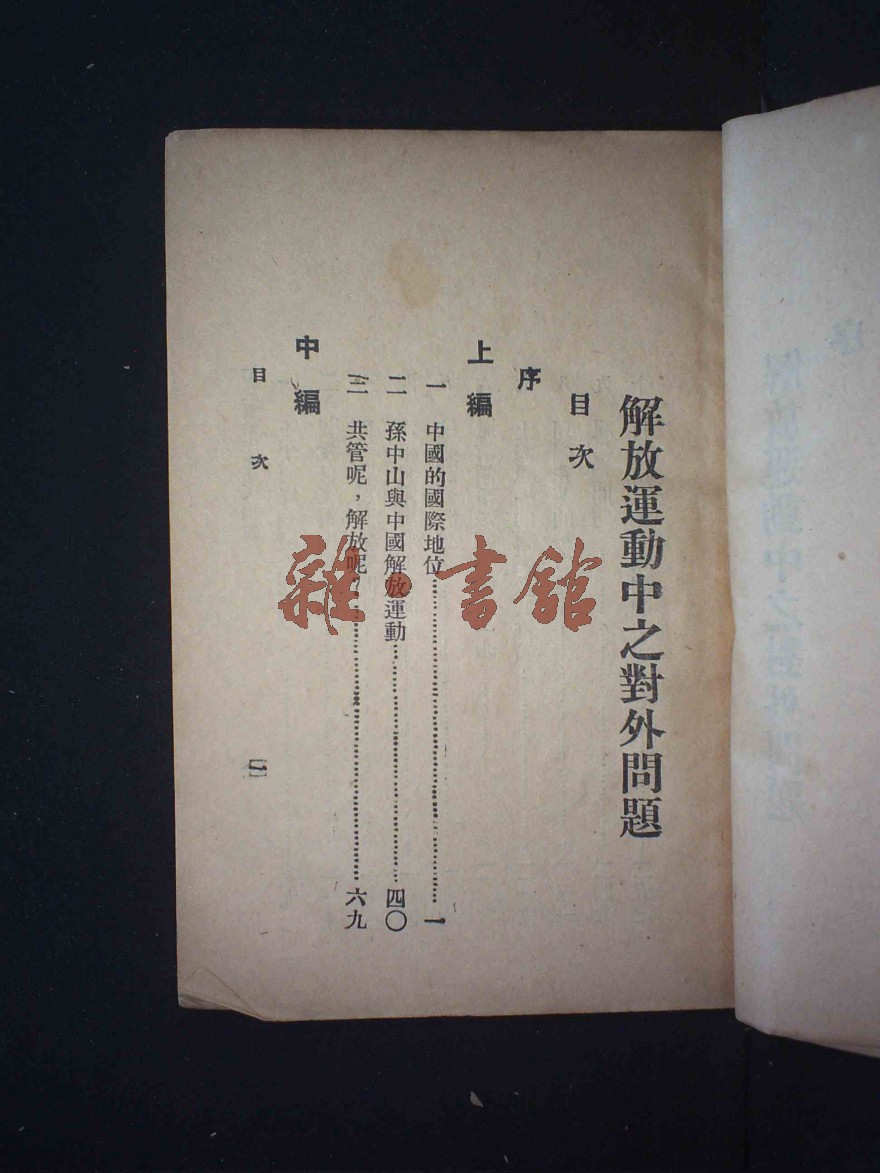 解放運動中之對外問題
目次
序
上編
一 中國的國際地位 一
二 孫中山與中國解放運動 四〇
三 共管呢,解放呢? 六九
中編
目次 〔一〕
雜·書館